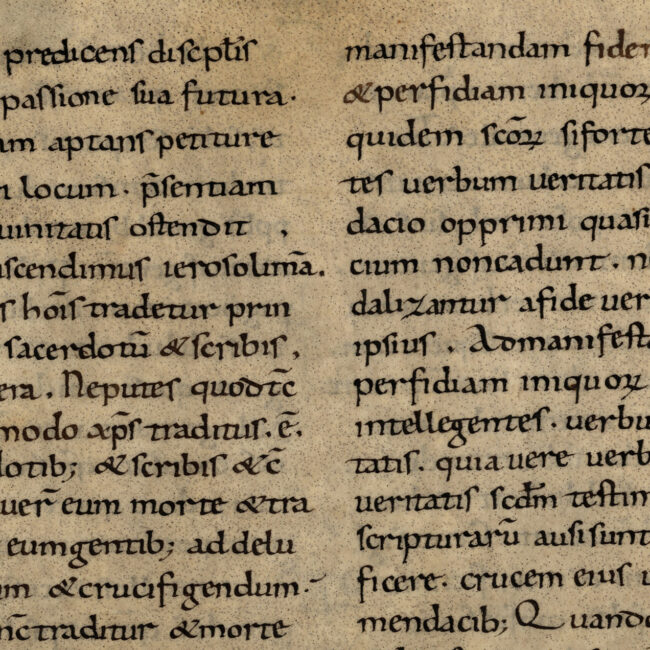 predicens discptīs
passione sua futura.
am aptans petiture
locum. p̄sentiam
uinitatis ostendit ,
scendimus ierosolimā.
s hoīs tradetur prin
sacerdotū & scribis,
era. Neputes quodtc̄
modo ap̄s traditus. ē.
dotib; & scribis & c̄
uer̄ eum morte & tra
eum gentib; addelu
m & crucifigendum.
nc̄ traditur & morte
manifestandam fidem
& perfidiam iniquoꝝ
quidem scōꝝ siforte
tes uerbum ueritatis
dacio opprimi quasi
cium noncadunt. n
dalizantur afide uer
ipsius. Admanifesta
perfidiam iniquoꝝ
intellegentes. uerbu
tatis. quia uere uerb
ueritatis scdm̄ testim
scripturarū ausi sunt
ficere. crucem eius u
mendacib; Quando